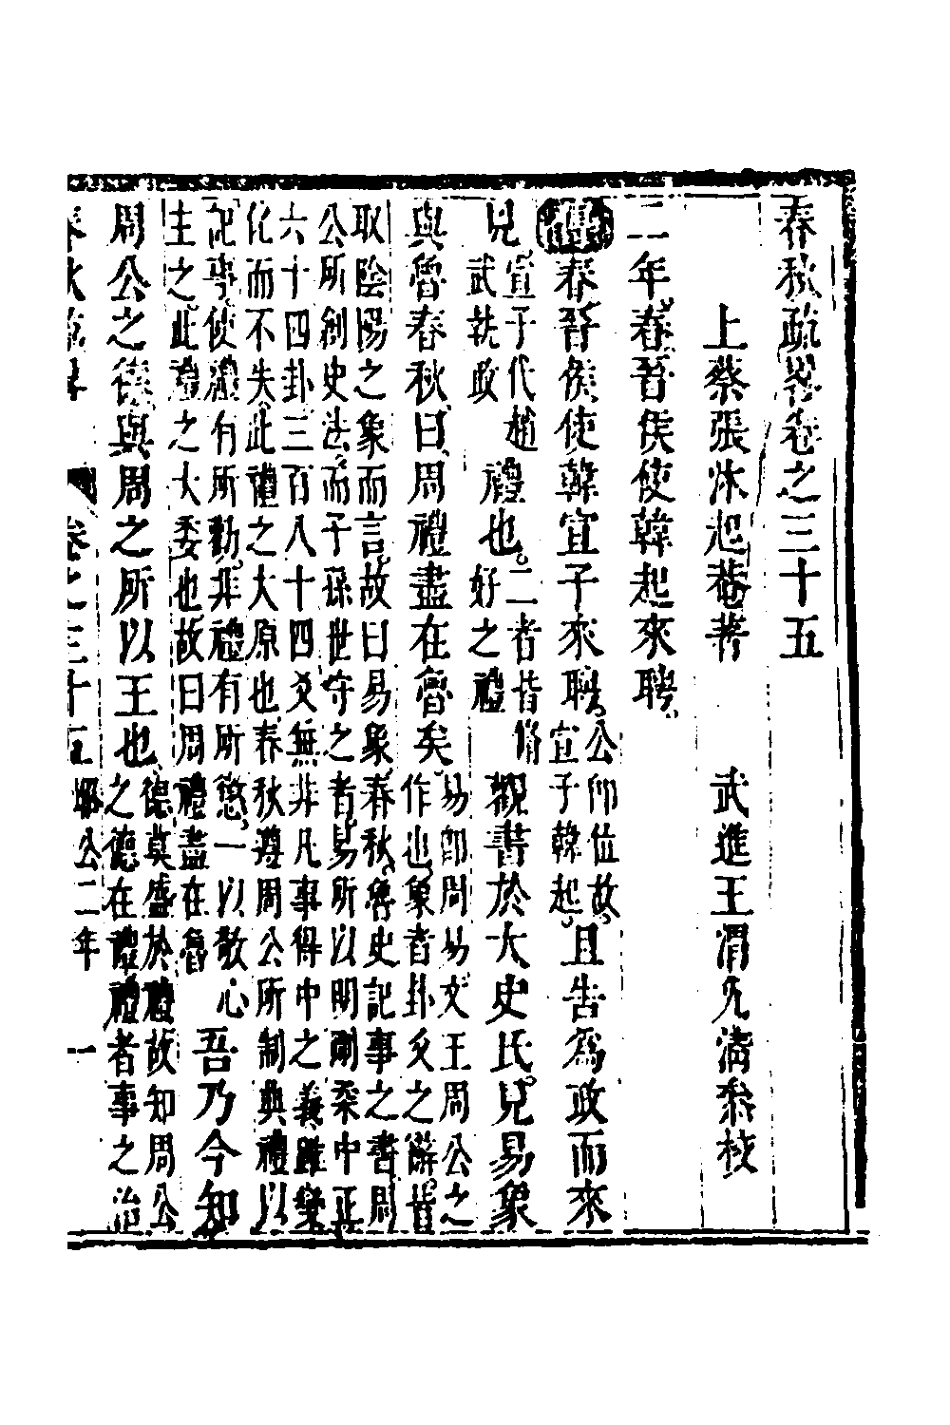 春秋疏畧卷之三十五
上蔡張沐起菴著　武進王渭叅校
二年春晉侯使韓起來聘
傳春晉侯使韓宣子來聘公即位故宣子韓起且告為政而來
見宣子代趙武執政禮也二者皆脩好之禮觀書於大史氏見易象
與魯春秋曰周禮盡在魯矣易即周易文王周公之作也象者卦爻之辭皆
取陰陽之象而言故曰易象春秋魯史記事之書周
公所剏史法而子孫世守之者易所以明剛柔中正
六十四卦三百八十四爻無非凡事得中之義雖變
化而不失此禮之大原也春秋遵周公所制典禮以
記事使禮有所勸非禮有所懲一以敬心
主之此禮之大委也故曰周禮盡在魯吾乃今知
周公之德與周之所以王也德莫盛於禮故知周公之德在禮禮者事之治
春秋疏畧　卷之三十五　昭公二年　一